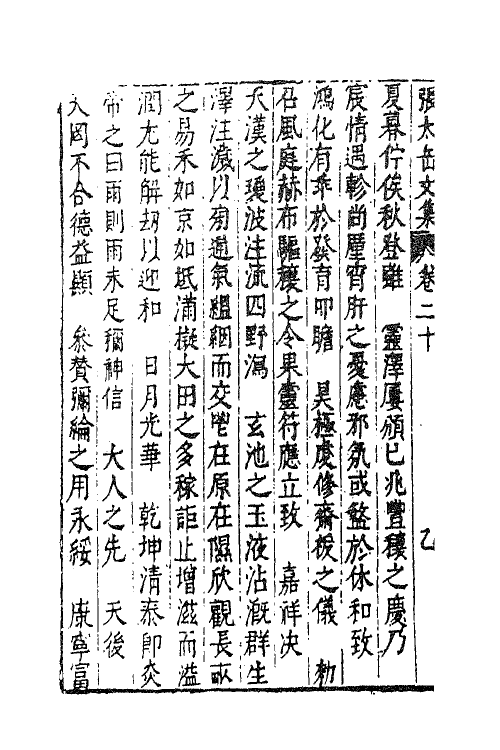 張太岳文集 卷二十 乙
夏暮佇俟秋登雖 靈澤屢頒已兆豐穰之慶乃
宸情遇軫尚厪宵旰之憂慮邪氛或盭於休和致
鴻化有乖於發育叩瞻 昊極虔修齋祓之儀 勑
召風庭赫布驅穰之令果靈符應立致 嘉祥决
天漢之瓊波注流四野瀉 玄池之玉液沾溉群生
澤注濊以旁通氣縕絪而交鬯在原在隰欣觀長畝
之易禾如京如坻滿擬大田之多稼詎止增滋而溢
潤尤能解刼以迎和 日月光華 乾坤清泰即炎
帝之曰雨則雨未足稱神信 大人之先 天後
天罔不合德益顯 叅賛彌綸之用永綏 康寧富